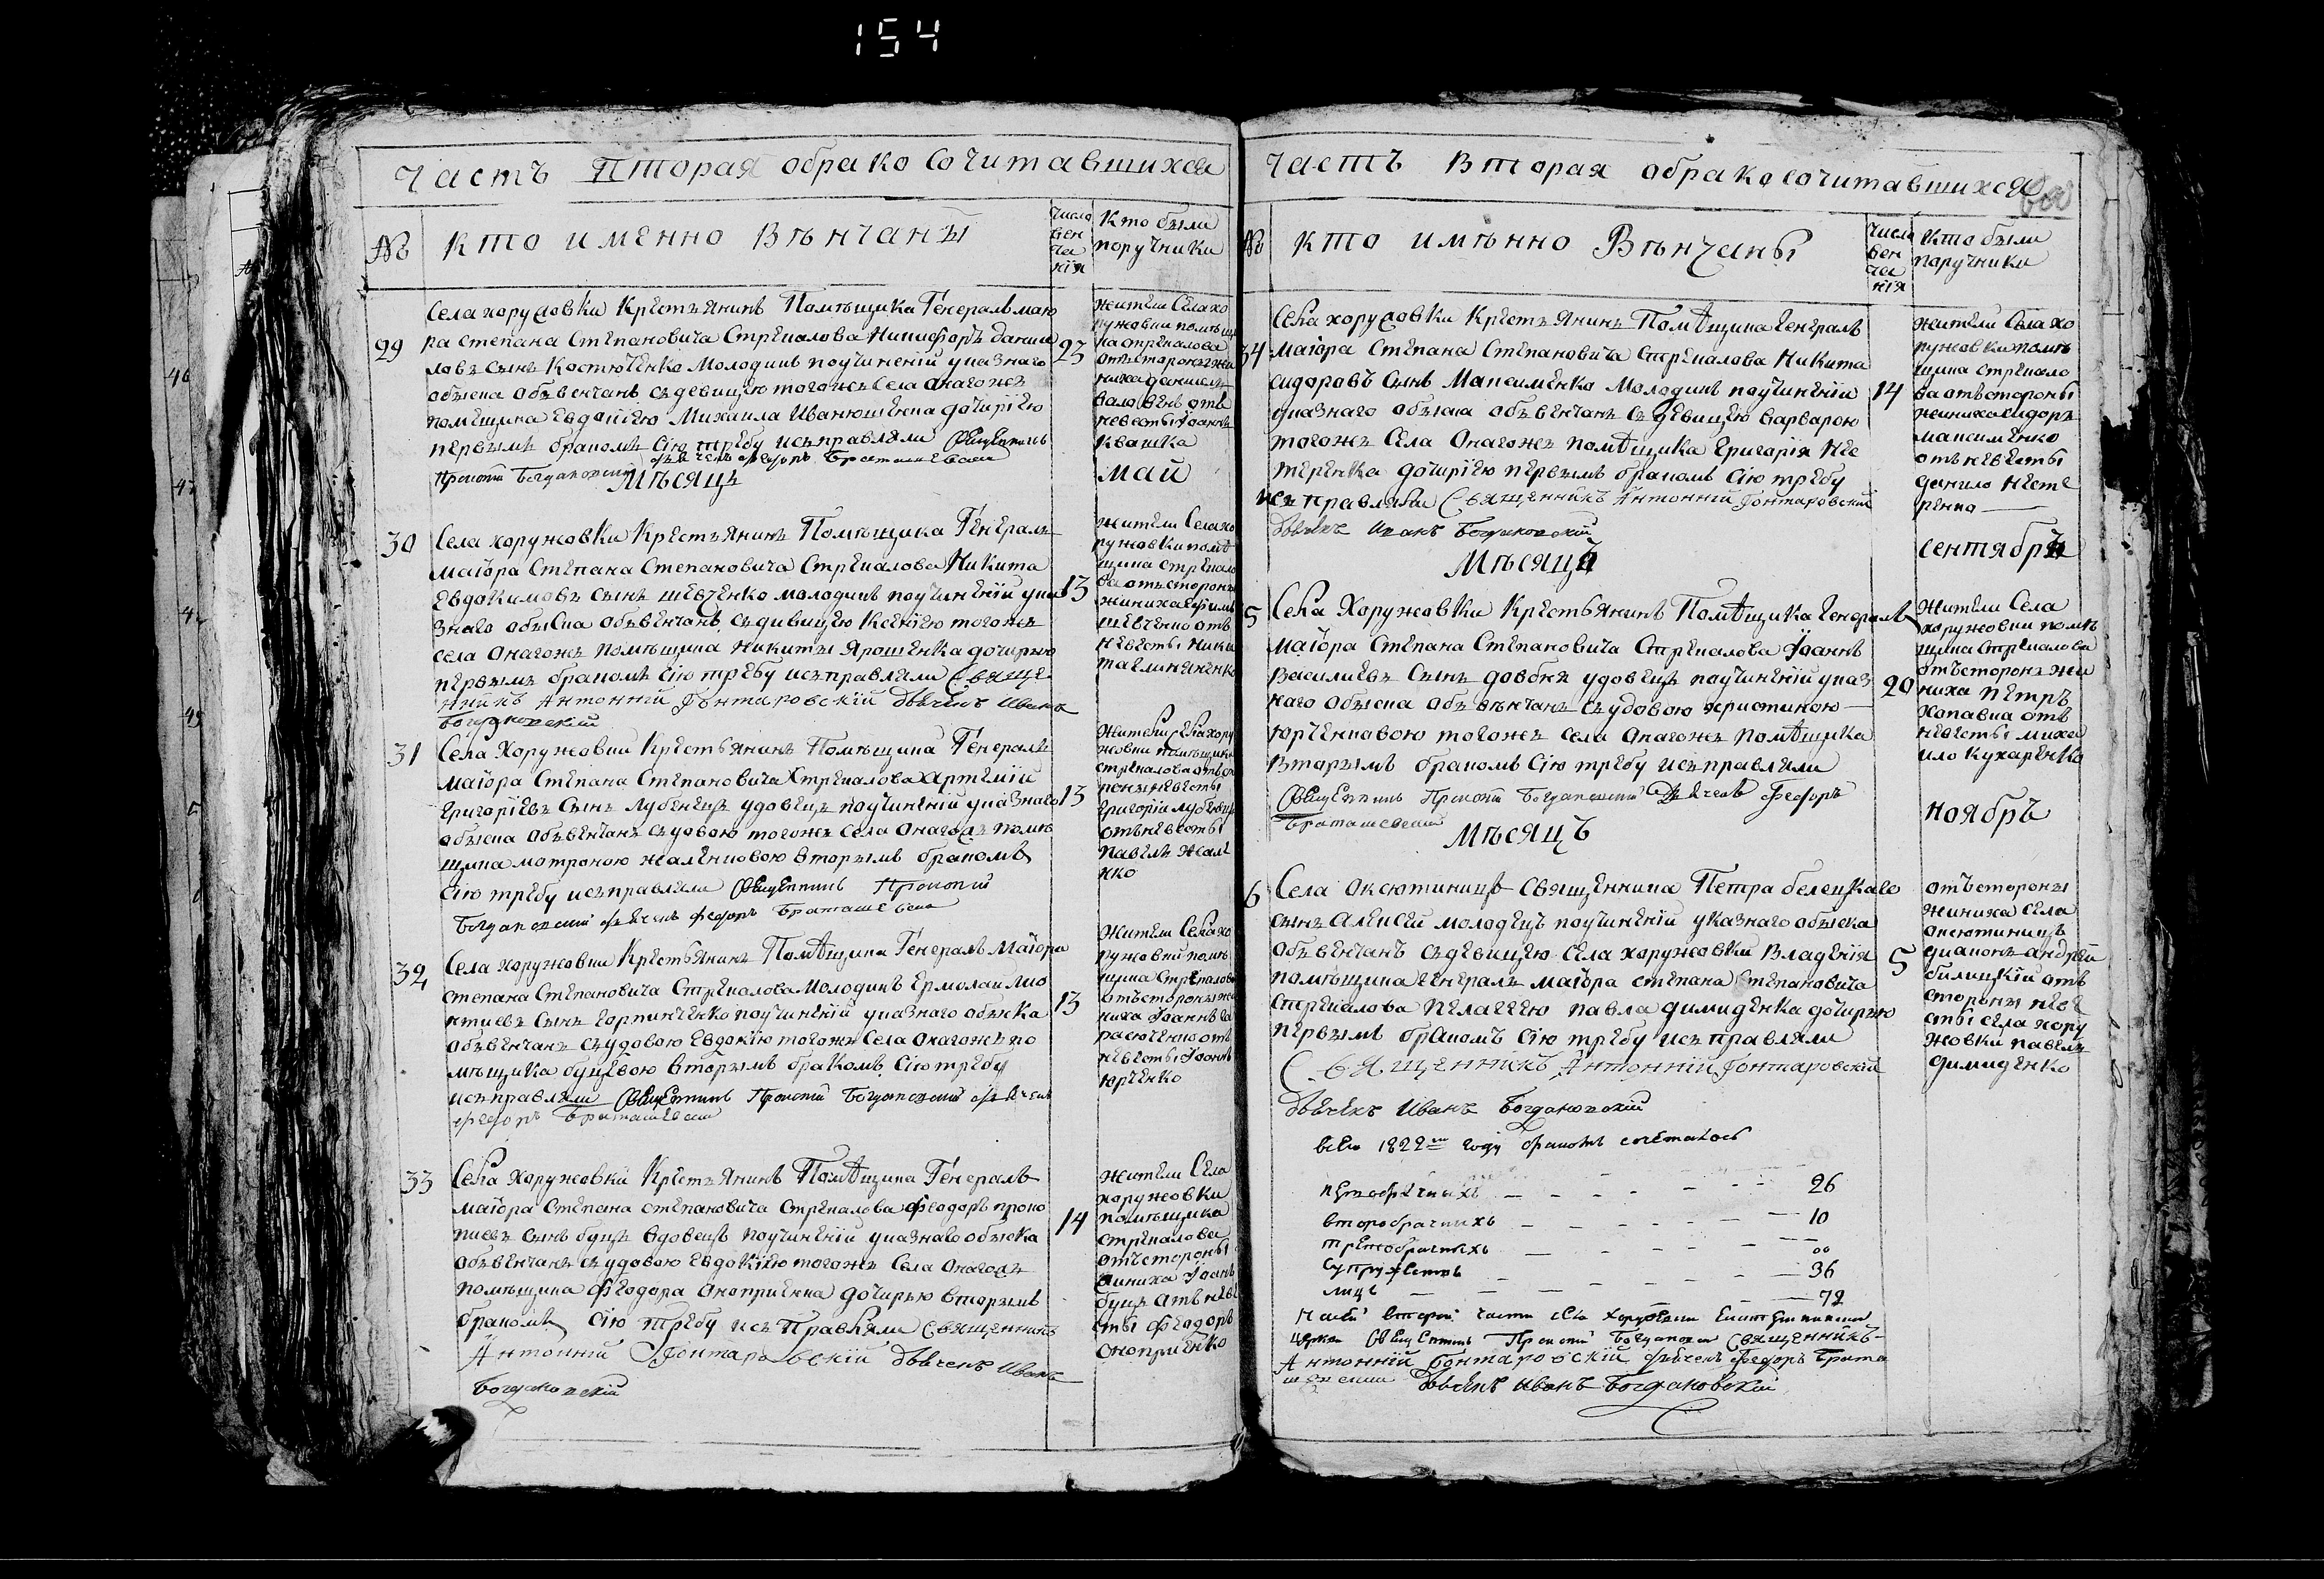 154
Часть Вторая обрако сочитавшихся
№
кто именно венчаны
число вен чания
кто были поручники
29
Села хоружовки Крестьянинъ Помещика Генералъ маио
ра степана Степановича Стрекалова Никифоръ дании
ловъ сынъ Костюченко молодикъ поучинении указнаго
обыска обвенчанъ съдевицею тогожъ села онагожъ
помещика Евдокиею Михаила Иванюшенка дочириею
первымъ бракомъ Сию требу исправляли Священникъ
Прокопий Богдановский дьячекъ Феодоръ Браташевский
23
жители Села хо
ружовки помещи
ка стрекалова
отъ стороны же
ниха данииль
отъ
невесты Иоаннъ
квашка
Месяцъ
май
30
Села хоружовки Крестьянинъ Помещика Генералъ
маиора Степана Степановича Стрекалова Никита
Евдокимовъ сынъ шевченко молодикъ поучинении ука
знаго обыска обвенчанъ съдивицею Ксениею тогожъ
села онагожъ помещика Никиты Ярошенка дочирью
первымъ бракомъ сию требу исправляли Священ
никъ Антоний Гонтаровский Дьячекъ Иванъ
Богдановский
13
жители Села хо
ружовки поме
щика стрекало
ва отъ стороны
жиниха Ефимъ
шевченко отъ
невесты ники
та
31
Села Хоружовки Крестьянинъ Помещика Генералъ
маиора Степана Степановича Стрекалова Артемий
Григориевъ сынъ лубенецъ удовецъ поучинении указнаго
обыска обвенчанъ съудовою тогожъ села онагожъ поме
щика мотроною жаленковою вторымъ бракомъ
сию требу исправляли Священникъ Прокопий
Богдановский дьячекъ Федоръ Браташевский
13
жители села хору
жовки помещика
стрекалова отъ сто
роны невесты
Григорий лубенецъ
отъ невесты
павелъ жале
нко
32
Села хоружовки Крестьянинъ Помещика Генералъ Маиора
степана Степановича Стрекалова молодикъ Ермолай Лио
нтиевъ сынъ горпинченко поучинении указнаго обыска
обвенчанъ съудовою Евдокию тогожъ Села онагожъ по
мещика буцевою вторымъ бракомъ Сию требу
исправляли Священникъ Прокопий Богдановский дьячекъ
Федоръ Браташевский
13
жители Села хо
ружовки поме
щика Стрекалова
отъ стороны же
ниха Иоаннъ ге
расюченко отъ
невесты Иоаннъ
юрченко
33
Села хоружовки Крестьянинъ Помещика Генералъ
маиора Степана степановича стрекалова Феодоръ проко
пиевъ сынъ буцъ вдовецъ поучинении указнаго обыска
обвенчанъ съудовою Евдокиею тогожъ Села онагожъ
помещика Феодора Оноприенка дочирью вторымъ
бракомъ сию требу исправляли священникъ
Антоний Гонтаровский Дьячекъ Иванъ
Богдановский
14
жители Села
хоружовки
помещика
стрекалова
отъ стороны
жиниха Иоанъ
буцъ отъ неве
сты Феодоръ
оноприенко
Часть Вторая обрако сочитавшихся
№
кто именно Венчаны
числа вен чания
кто были поручники
34
Села хоружовки Крестьянинъ Помещика Генералъ
маиора Степана Степановича Стрекалова Никита
сидоравъ сынъ Максименко молодикъ поучинении
указнаго обыска обвенчанъ съдевицею варварою
тогожъ Села онагожъ помещика Григория Не
теренка дочириею первымъ бракомъ сию требу
исправляли Священникъ Антоний Гонтаровский
Дьячекъ Иванъ Богдановский
14
жители Села хо
ружовки поме
щика стрекало
ва отъ стороны
жиниха Сидоръ
максименко
отъ невесты
данило нете
ренко
Месяцъ
сентябрь
5
Села Хоружовки Крестьянинъ Помещика Генералъ
маиора Степана Степановича Стрекалова Иоаннъ
Василиевъ сынъ довбня удовецъ поучинении указ
наго обыска обвенчанъ съудовою христиною
юрченковою тогожъ села онагожъ помещика
вторымъ бракомъ сию требу исправляли
Священникъ Прокопий Богдановский Дьячекъ Федоръ
Браташевский
20
жители Села
хоружовки поме
щика стрекалова
отъ стороны жи
ниха петръ
хопавка отъ
невесты миха
ило кухаренко
Месяцъ
ноябрь
6
Села Оксютиницъ священника Петра белецкаго
сынъ Алексей молодецъ поучинении указнаго обыска
обвенчанъ съдевицею села хоружовки владения
помещика генералъ маиора степана степановича
стрекалова пелагеею павла димиденка дочирью
первымъ бракомъ сию требу исправляли
Священникъ Антоний Гонтаровский
Дьячекъ Иванъ Богдановский
5
отъ стороны
жиниха села
оксютиницъ
диаконъ андрей
билицкий отъ
стороны неве
сты села хору
жовки павелъ
димиденко
всего 1822го году браковъ сочеталось
первобрачныхъ 26
второбрачныхъ 10
третобрачныхъ 00
супружествъ 36
лицъ 72
Къ сей второй части села Хоружовки
церкви Священникъ Прокопий Богдановский Священникъ
Антоний Гонтаровский дьячекъ Федоръ Брата
шевский Дьячекъ Иванъ Богдановский